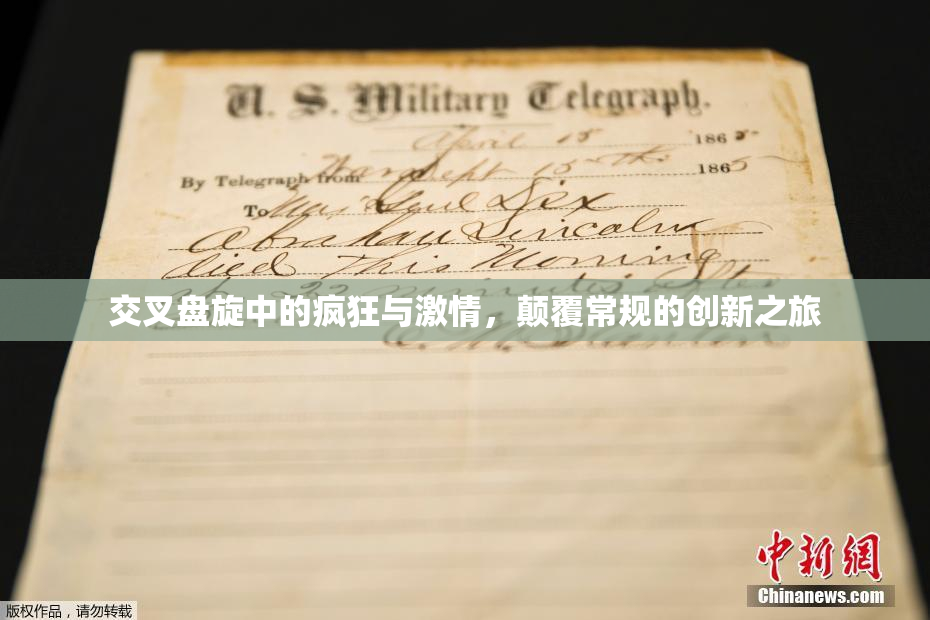 U. S. Military Telegraph.
April 15 1865
By Telegraph from War Dept 15th 1865
To Maj Genl Dix
Abraham Lincoln
died This Morning
22 minutes after
交叉盘旋中的疯狂与激情，颠覆常规的创新之旅
E. M. Stanton
中新網
Chinanews.com
版权作品，请勿转载